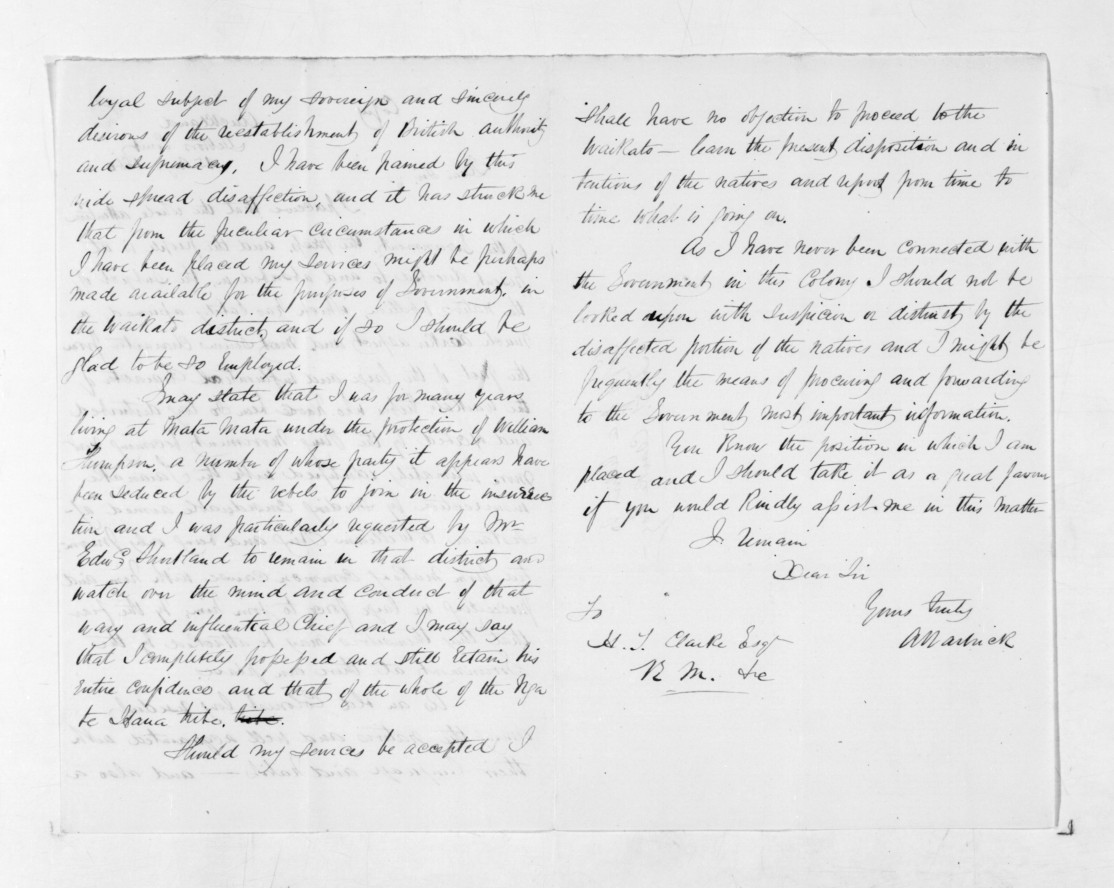 loyal subject of my sovereign and sincerely
desirous of the reestablishment of British authority
and supremacy. I have been pained by this
wide spread disaffection, and it has struck me
that from the peculiar circumstances in which
I have been placed my services might be perhaps
made available for the purposes of Government, in
the Waikato district, and if so I should be
glad to be so employed.
I may state that I was for many years
living at Mata Mata under the protection of William
Thompson, a number of whose party it appears have
been seduced by the rebels to join in the insurrec
tion and I was particularly requested by Mr
Edwd Shortland to remain in that district and
watch over the mind and conduct of that
wary and influential Chief and I may say
that I completely possessed and still retain his
entire confidence and that of the whole of the Nga
te Haua tribe. tribe.
Should my services be accepted I
shall have no objection to proceed to the
Waikato — learn the present disposition and in
tentions of the natives and report from time to
time what is going on.
As I have never been connected with
the Government in this Colony I should not be
looked upon with suspicion or distrust by the
disaffected portion of the natives and I might be
frequently the means of procuring and forwarding
to the Government most important information.
You know the position in which I am
placed and I should take it as a great favour
if you would kindly assist me in this matter
I remain
Dear Sir
Yours truly
A Warbrick
To
H. T. Clarke Esqr
R M. &c